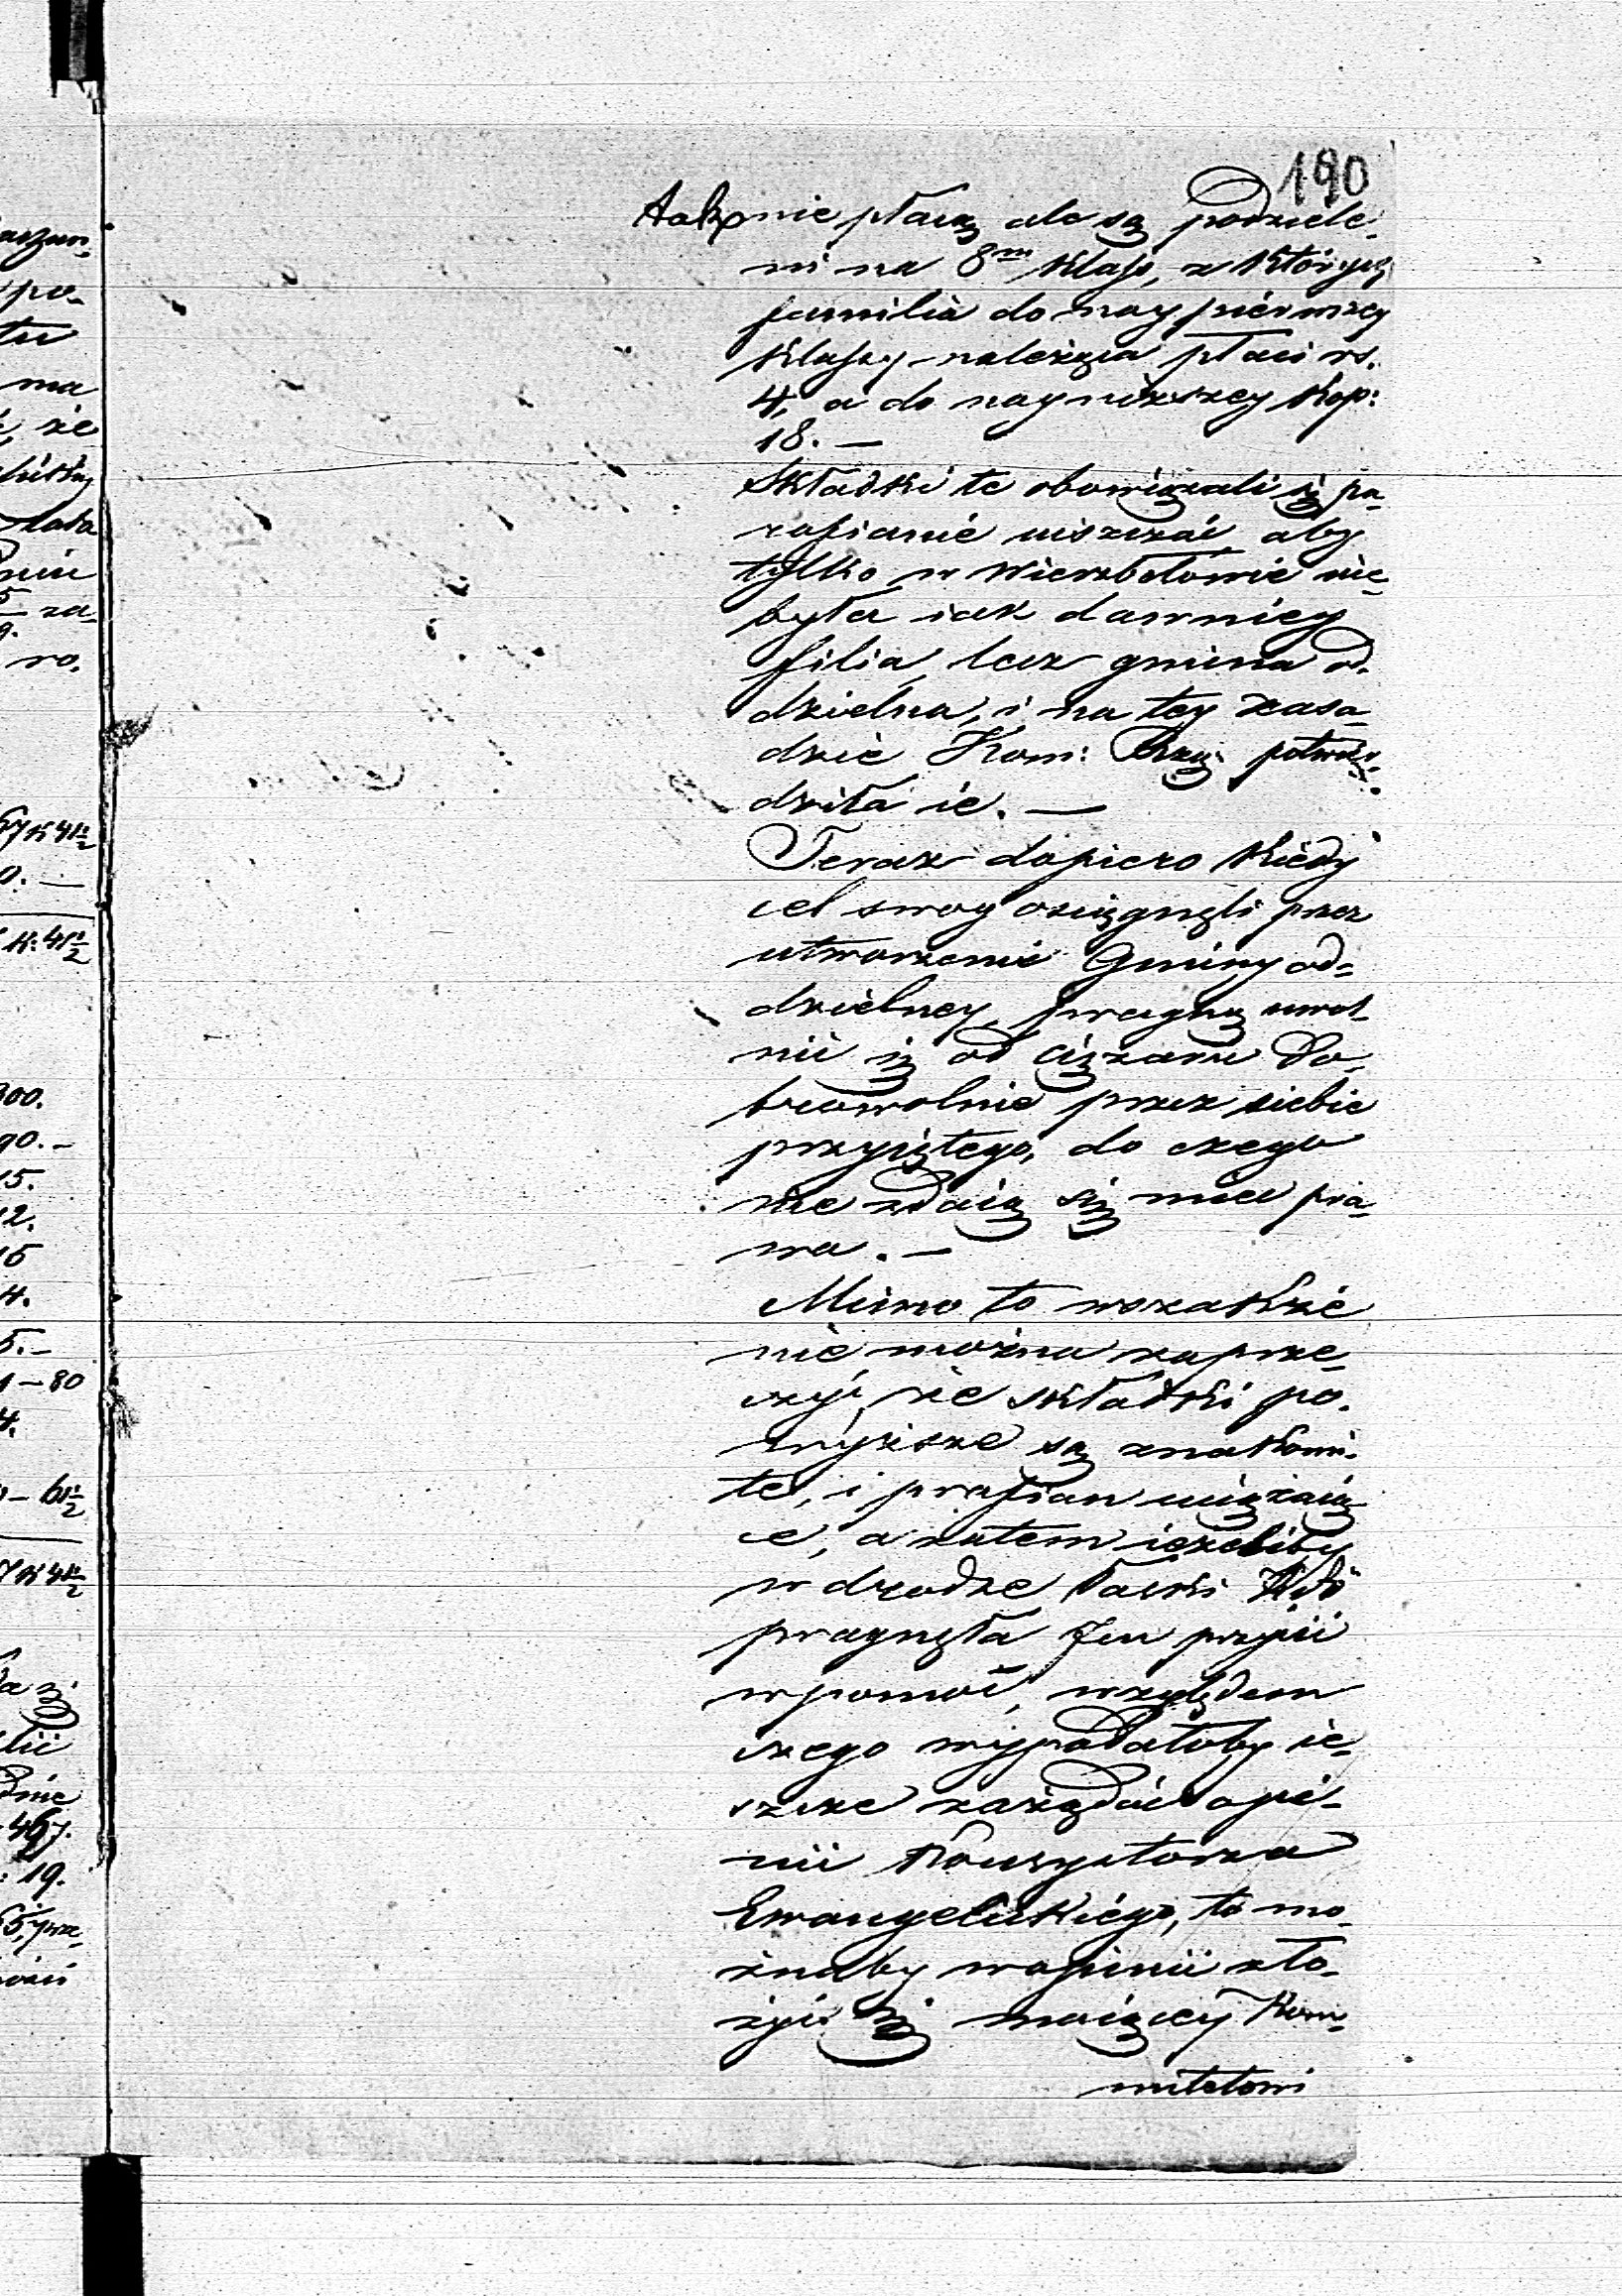 190
nie płacą ale są podziele-
ni na 8m klass, z których
familia do naypierwszey
klassy należąca płaci rs.
4, a do nayniższey kop:
18. —
Składki te obowiązali się pa-
rafianie uiszczać aby
tylko w Wierzbołowie nie-
była iak dawniey
filia, lecz gmina od-
dzielna, i na tey zasa-
dzie Kom: Rząd: potwier-
dziła ie. —
Teraz dopiero kiedy
cel swoy osiągnęli przez
utworzenie Gminy od-
dzielney, pragną uwol-
nić się od ciężaru do-
browolnie przez siebie
przyiętego, do czego
nie zdaią się mieć pra-
wa. —
Mimo to wszakże
nie można zaprze-
czyć, że składki po-
wyższe są znakomi-
te, i parafian uciążaią-
ce, a zatem ieżeliby
w drodze łaski
pragnęła Im przyiść
w pomoc, względem
czego wypadałoby ie-
szcze zażądać opi-
nii Konsystorza
Ewangelickiego, to mo-
żnaby w opinii zło-
żyć się maiącey Kom-
mitetowi
aszan-
po-
tu
ma
że
za-
ro.
0. —
K: 41½
300.
90. —
15.
12.
4.
5. —
1 — 80
4.
— 61½
K 41½
467.
: 19.